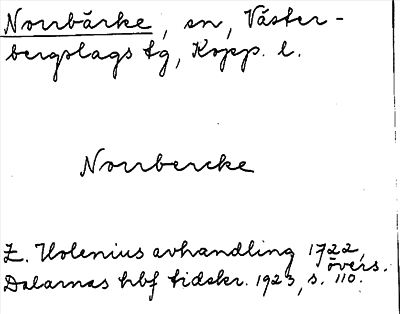 Norrbärke, sn, Väster-
bergslags tg, Kopp. l.
Norrbercke
Z. Holenius avhandling 1722,
övers.
Dalarnas hbf tidskr. 1923, s. 110.